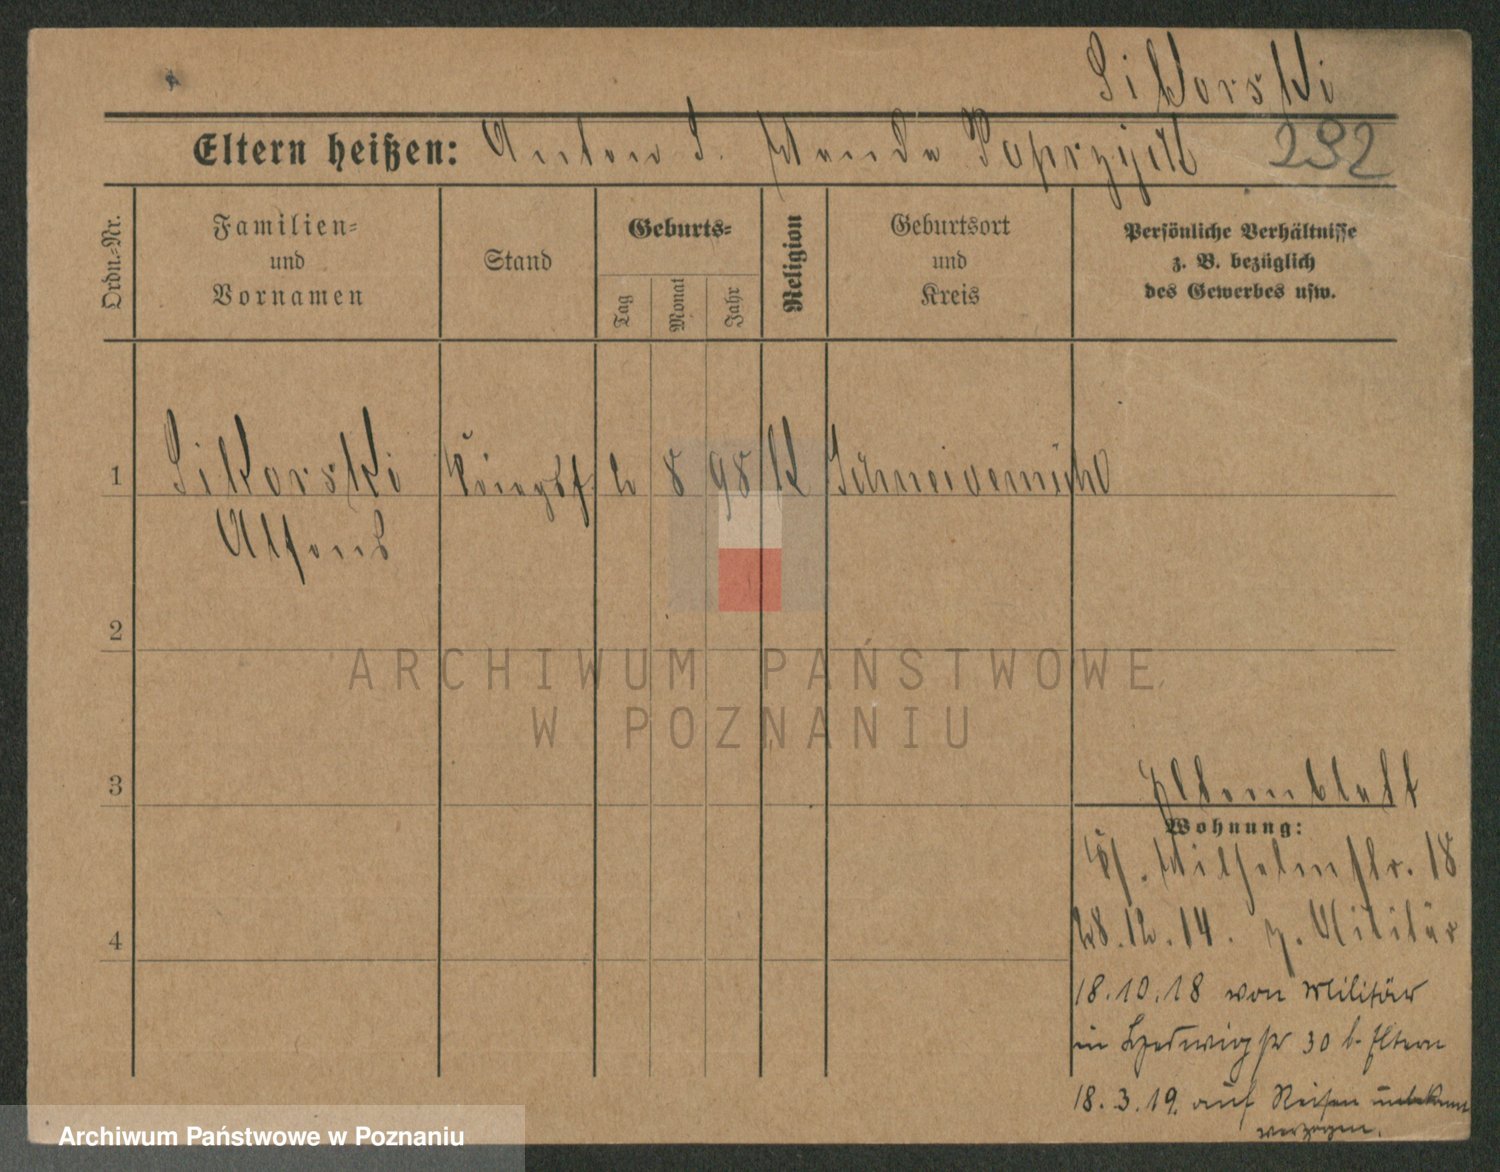 Sikorski
Eltern heißen: Anton S. Wanda Poprzyck 292
Ordn.-Nr.
Familien-
und
Vornamen
Stand
Geburts-
Tag
Monat
Jahr
Religion
Geburtsort
und
Kreis
Persönliche Verhältnisse
z. B. bezüglich
des Gewerbes usw.
1 Sikorski 2 8 98 K Schneidemühl
Alfons
2
ARCHIWUM PAŃSTWOWE
W POZNANIU
3
Elternblatt
Wohnung:
Wilhelmstr. 18
4
28.12.14. z. Militär
18.10.18 von Militär
in Hedwigstr 30 b. Eltern
18.3.19. auf Reisen unbekannt
verzogen.
Archiwum Państwowe w Poznaniu